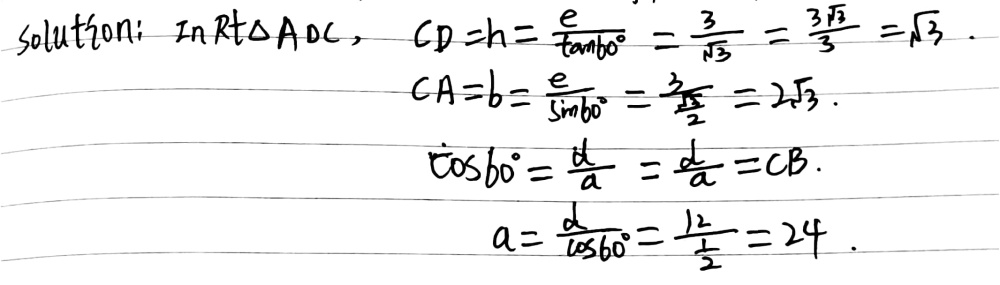 solution: In Rt△ADC, CD=h=e/tan60°=3/√3=3√3/3=√3.
CA=b=e/sin60°=3/(√3/2)=2√3.
cos60°=d/a=d/a=CB.
a=d/cos60°=12/(1/2)=24.